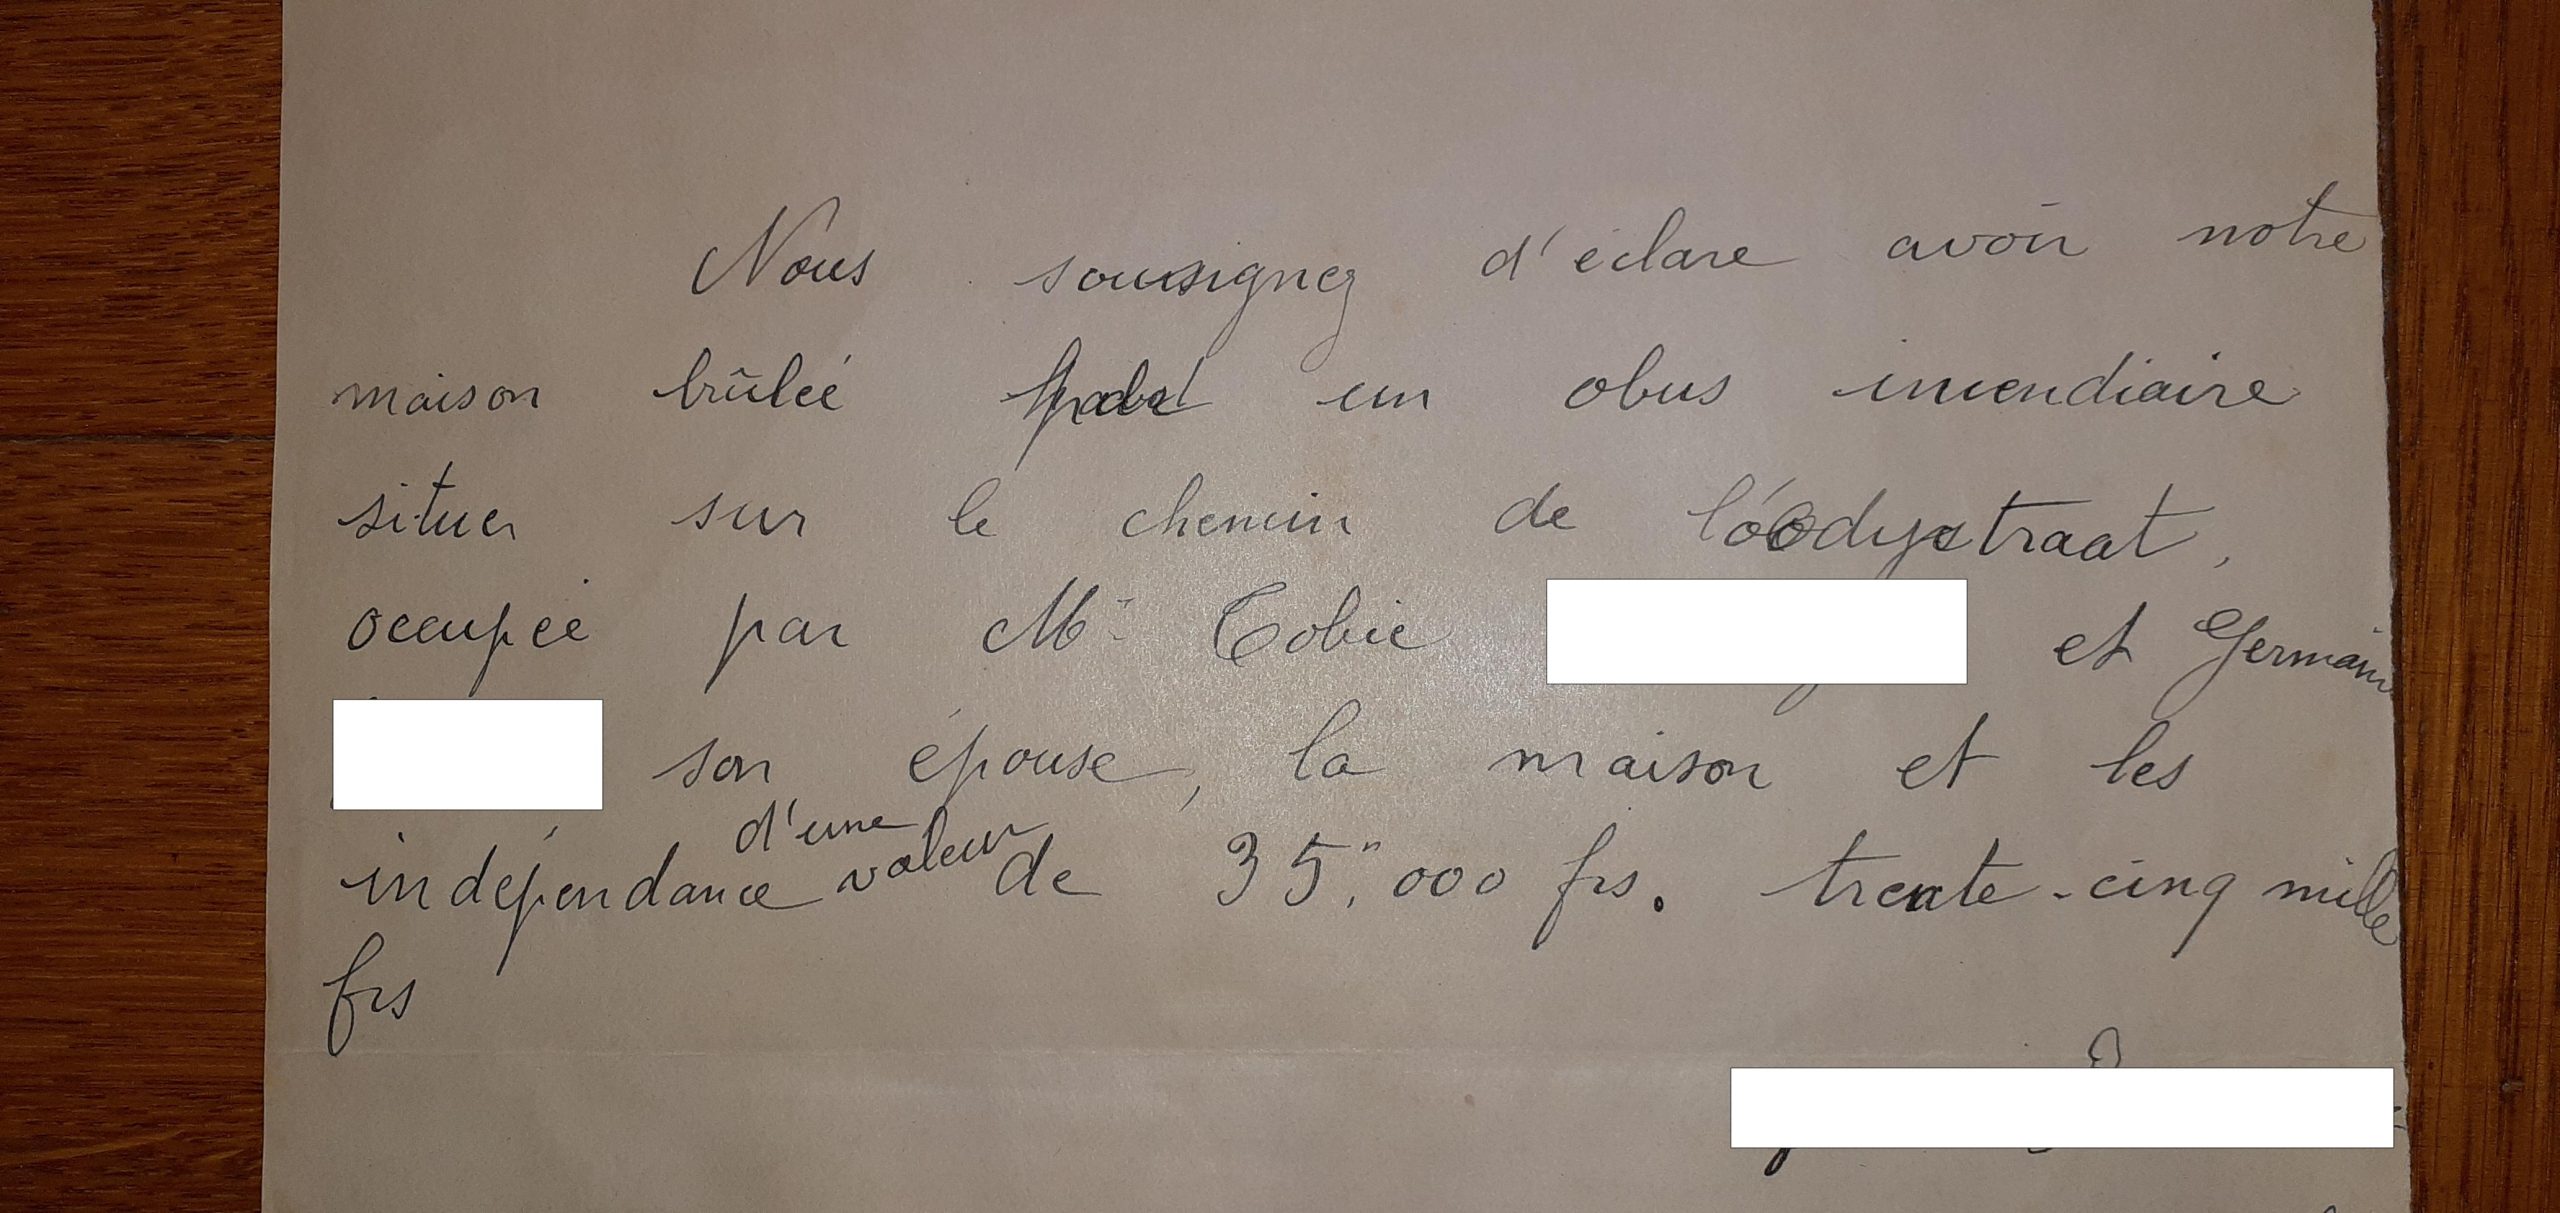 Nous sousignez d'éclare avoir notre
maison brûleé par un obus incendiaire
situer sur le chemin de
occupeé par Mr Tobie et Germain
son épouse, la maison et les
indépendance d'une valeur de 35.000 frs. trente-cinq mille
frs